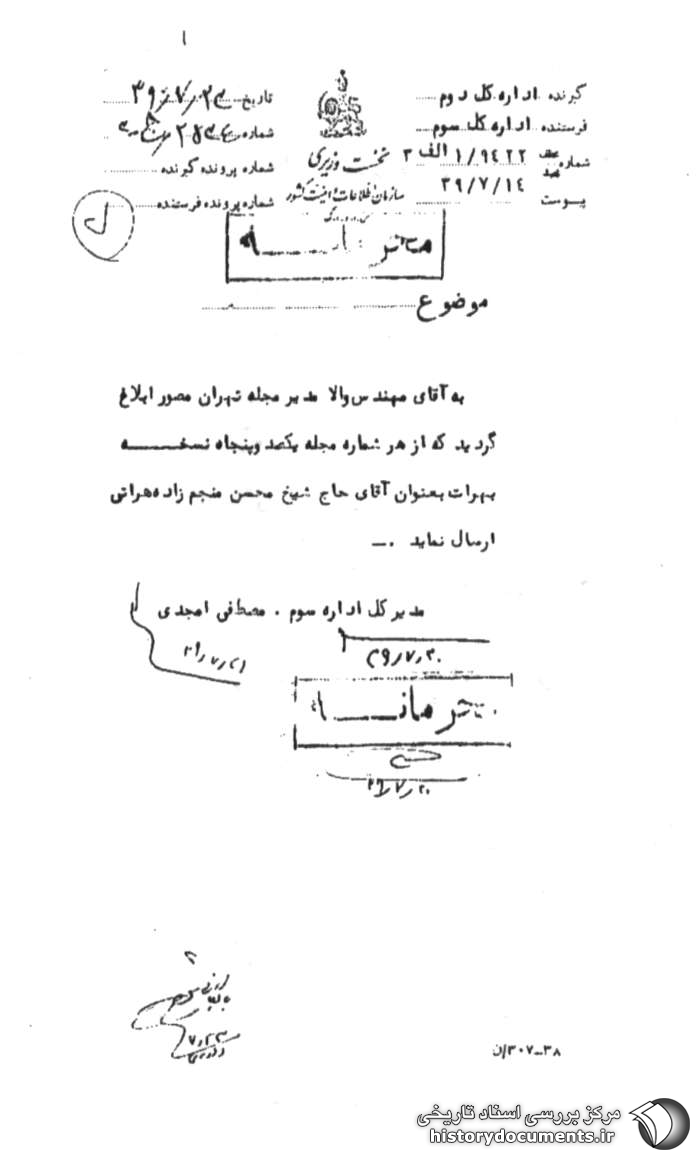 ۱
گیرنده اداره کل دوم
فرستنده اداره کل سوم
شماره ۱/۹۴۲۲ الف ۳
۳۹/۷/۱۴
پیوست
نخست وزیری
سازمان اطلاعات و امنیت کشور
تاریخ ۳۹/۷/۲۳
شماره
شماره پرونده گیرنده
شماره پرونده فرستنده
محرمانه
موضوع
به آقای مهندس والا مدیر مجله تهران مصور ابلاغ
گردید که از هر شماره مجله یکصد و پنجاه نسخه
بهرات بعنوان آقای حاج شیخ محسن منجم زاده هراتی
ارسال نماید .ـ
مدیر کل اداره سوم . مصطفی امجدی
۳۹/۷/۲۰
۳۹/۷/۲۱
محرمانه
۳۹/۷/۲۰
۷/۲۳
۳۸-۳۰۷/ن
مرکز بررسی اسناد تاریخی
historydocuments.ir